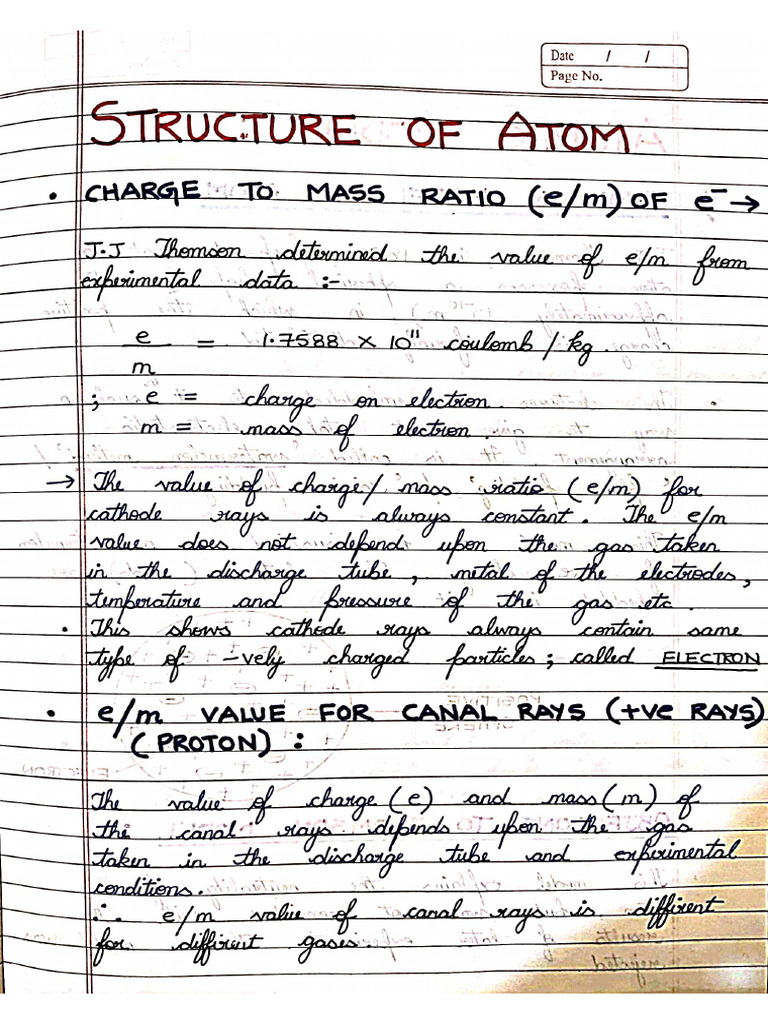 Date / /
Page No.
STRUCTURE OF ATOM
• CHARGE TO MASS RATIO (e/m) OF e⁻ →
J.J Thomson determined the value of e/m from
experimental data :-
e
— = 1.7588 × 10¹¹ coulomb / kg.
m
; e = charge on electron.
m = mass of electron.
→ The value of charge/ mass ratio (e/m) for
cathode rays is always constant. The e/m
value does not depend upon the gas taken
in the discharge tube, metal of the electrodes,
temperature and pressure of the gas etc.
• This shows cathode rays always contain same
type of -vely charged particles; called ELECTRON
• e/m VALUE FOR CANAL RAYS (+ve RAYS)
(PROTON) :
The value of charge (e) and mass (m) of
the canal rays depends upon the gas
taken in the discharge tube and experimental
conditions.
∴ e/m value of canal rays is diffirent
for diffirent gases.